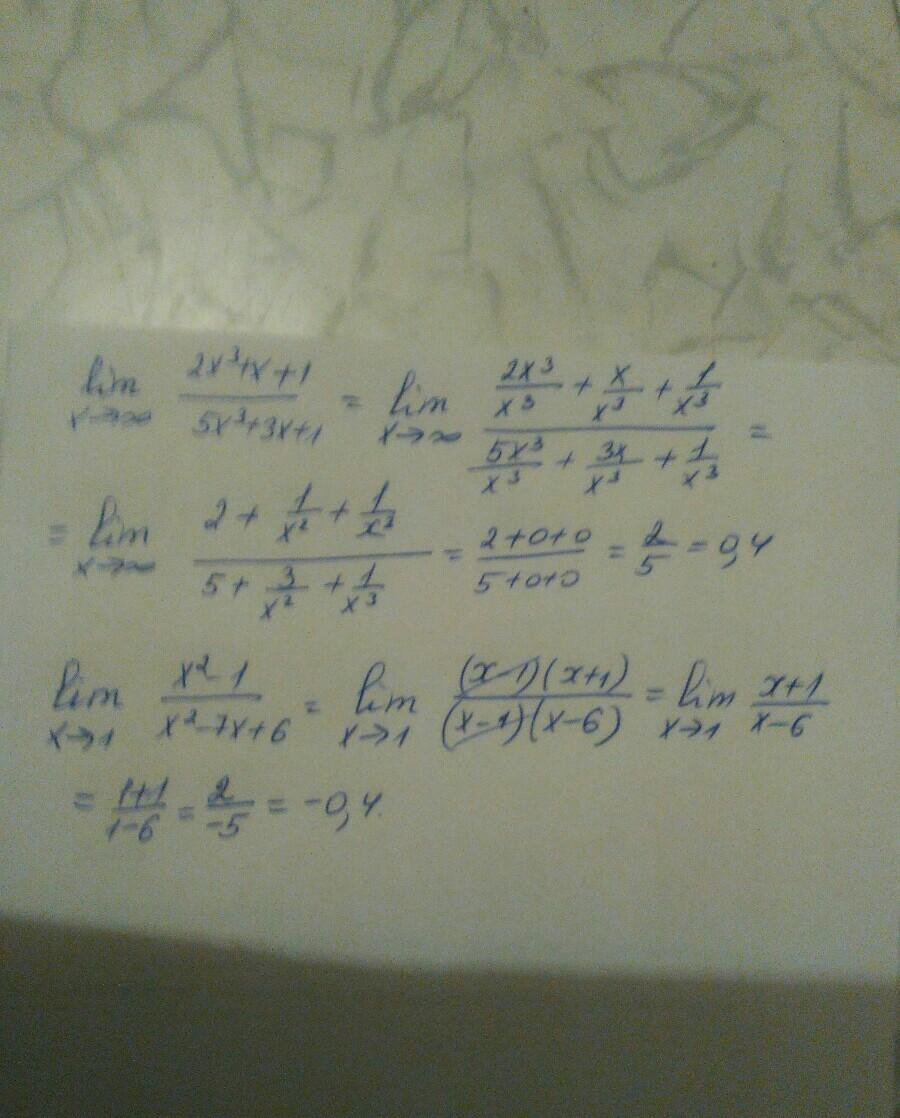 lim x→∞ (2x³+x+1)/(5x³+3x+1) = lim x→∞ (2x³/x³ + x/x³ + 1/x³)/(5x³/x³ + 3x/x³ + 1/x³) =
= lim x→∞ (2 + 1/x² + 1/x³)/(5 + 3/x² + 1/x³) = (2+0+0)/(5+0+0) = 2/5 = 0,4
lim x→1 (x²-1)/(x²-7x+6) = lim x→1 ((x-1)(x+1))/((x-1)(x-6)) = lim x→1 (x+1)/(x-6)
= (1+1)/(1-6) = 2/-5 = -0,4.